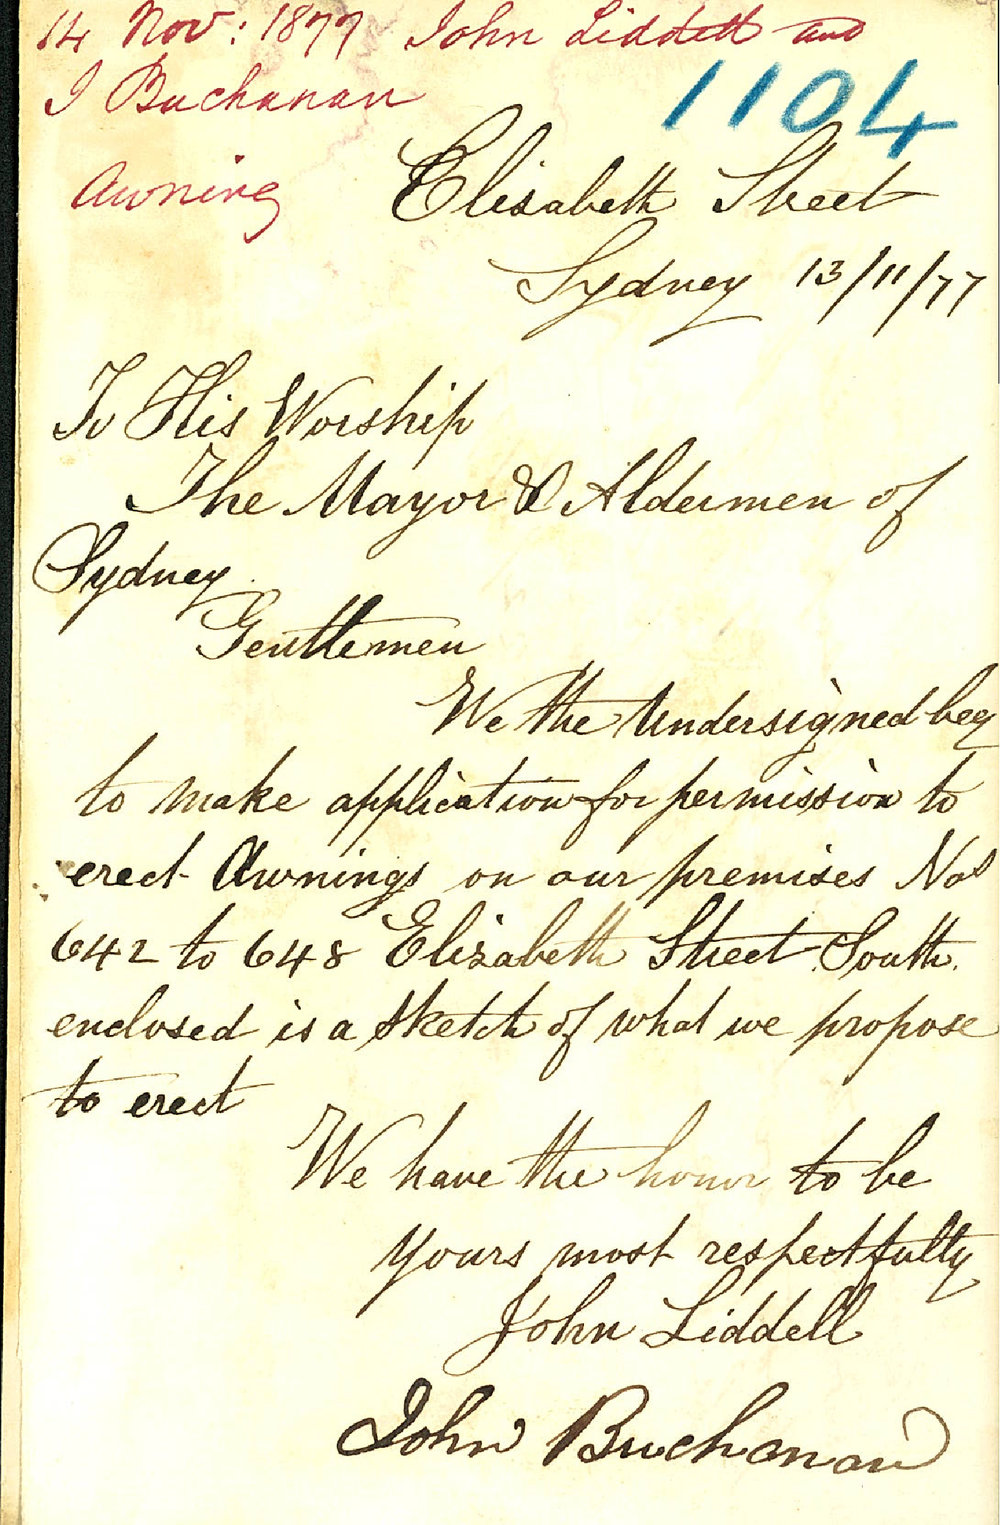 14 Nov: 1877 John Liddell and
J Buchanan
1104
Awning
Elizabeth Street
Sydney 13/11/77
To His Worship
The Mayor & Aldermen of
Sydney.
Gentlemen
We the Undersigned beg
to make application for permission to
erect Awnings on our premises Nos
642 to 648 Elizabeth Street South.
enclosed is a sketch of what we propose
to erect
We have the honor to be
Yours most respectfully
John Liddell
John Buchanan